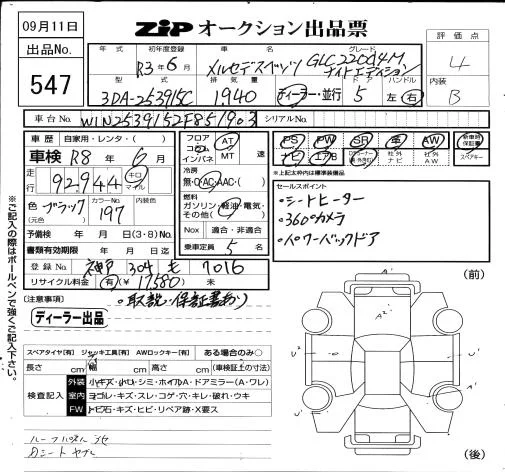 09月11日
出品No.
547
ZIP オークション出品票
評価点
4
内装
B
年式 初年度登録 車名 グレード
R3年6月 メルセデスベンツ GLC220d4M
ナイトエディション
型式 排気量 ドア ハンドル
3DA-253915C 1,940 ディーラー・並行 5 左 右
車台No. W1N2539152F851903 シリアルNo.
車歴 自家用・レンタ・( )
車検 R8年 6月
走行 92,944 キロ マイル
色 ブラック (元色) カラーNo. 197 内装色
予備検 年 月 日(3・8)No.
書類有効期限 年 月 日迄
登録No. 神戸 304 も 7016
リサイクル料金 有(¥17,580) 未
フロア コラム インパネ
AT MT 速
冷房
無・C・AC・AAC・( )
燃料
ガソリン・軽油・電気・その他( )
Nox 適合・非適合
乗車定員 5 名
PS PW SR 革 AW
ナビ エアB 社外ナビ 社外AW
新車時保証書
スペアキー
*上記太枠内は標準装備品
セールスポイント
・シートヒーター
・360°カメラ
・パワーバックドア
(注意事項)
・取説・保証書あり
ディーラー出品
※ご記入の際はボールペンで強くご記入下さい。
スペアタイヤ[有] ジャッキ工具[有] AWロックキー[有] ある場合のみ○
長さ cm 幅 cm 高さ cm (車検証上の寸法)
検査記入
外装 小キズ・小凹・シミ・ホイルA・ドアミラー(A・ワレ)
室内 ヨゴレ・キズ・スレ・コゲ・穴・キレ・破れ・ウキ
FW トビ石・キズ・ヒビ・リペア跡・X要ス
ルーフパネル
Dシートヤブレ
(前)
A'
A'
A²
U²
U'
A'
(後)